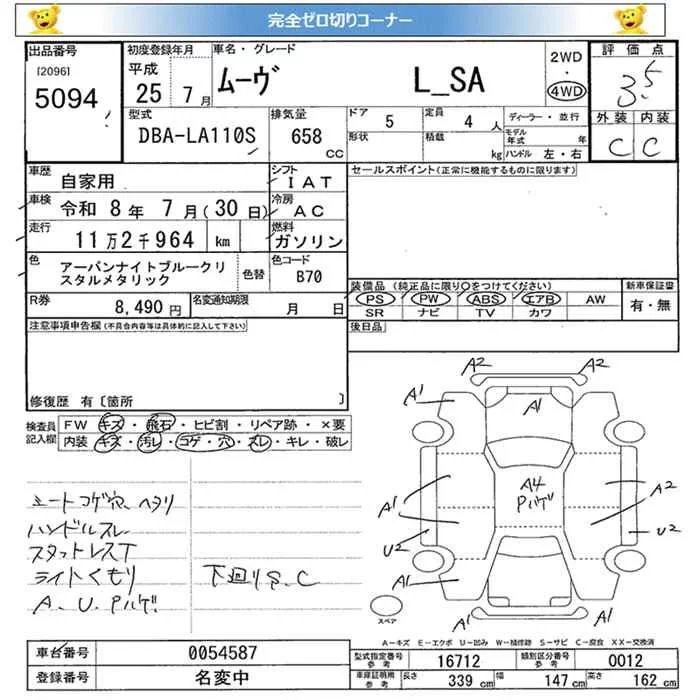 完全ゼロ切りコーナー
出品番号
[2096]
5094
初度登録年月
平成
25 7月
車名・グレード
ムーヴ L_SA
2WD
・
4WD
評価点
3.5
外装 内装
C C
型式
DBA-LA110S
排気量
658
CC
ドア
5
定員
4人
形状
積載
kg
ディーラー・並行
モデル年式 年
ハンドル 左・右
車歴
自家用
シフト
IAT
車検
令和 8年 7月(30日)
冷房
AC
走行
11万2千964 km
燃料
ガソリン
色
アーバンナイトブルークリスタルメタリック
色替
色コード
B70
R券
8,490円
名変通知期限
月 日
セールスポイント(正常に機能するものに限ります)
装備品 (純正品に限り○をつけてください)
PS PW ABS エアB AW
SR ナビ TV カワ
新車保証書
有・無
後日品
注意事項申告欄(不具合内容等は具体的に記入して下さい)
修復歴 有〔箇所 〕
検査員記入欄
FW キズ・飛石・ヒビ割・リペア跡・×要
内装 キズ・汚レ・コゲ・穴・スレ・キレ・破レ
シートコゲ穴、ヘタリ
ハンドルスレ
スタットレスT
ライトくもり
A、U、Pハゲ
下回りS、C
A2 A2
A1 A1 A1
A4
Pハゲ
A1 A2
U2 U2
A1 A1
スペア
A-キズ E-エクボ U-凹み W-補修跡 S-サビ C-腐食 XX-交換済
車台番号
0054587
登録番号
名変中
型式指定番号
参考
16712
類別区分番号
参考
0012
車庫証明用
参考
長さ 339 cm
幅 147 cm
高さ 162 cm